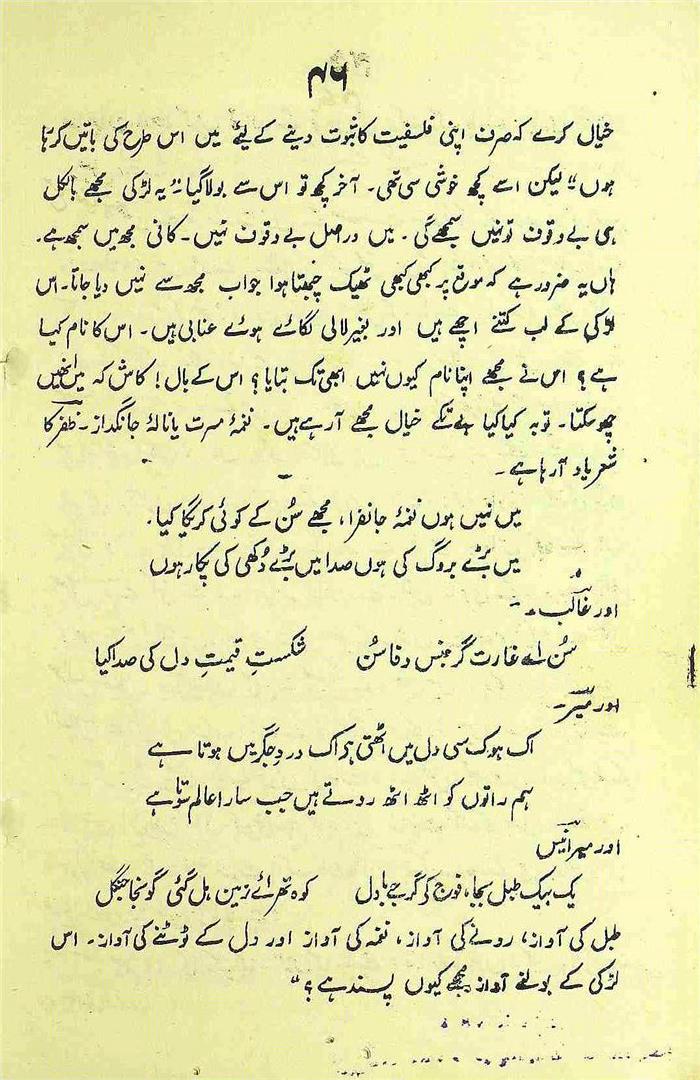 ۴۶
خیال کرے کہ صرف اپنی فلسفیت کا ثبوت دینے کے لیئے میں اس طرح کی باتیں کر رہا
ہوں" لیکن اسے کچھ خوشی سی تھی۔ آخر کچھ تو اس سے بولا گیا۔ "یہ لڑکی مجھے بالکل
ہی بے وقوف تو نہیں سمجھے گی۔ میں دراصل بے وقوف نہیں۔ کافی مجھ میں سمجھ ہے۔
ہاں یہ ضرور ہے کہ موقع پر کبھی کبھی ٹھیک چبھتا ہوا جواب مجھ سے نہیں دیا جاتا۔ اس
لڑکی کے لب کتنے اچھے ہیں اور بغیر لالی لگائے ہوئے عنابی ہیں۔ اس کا نام کیا
ہے؟ اس نے مجھے اپنا نام کیوں نہیں ابھی تک بتایا؟ اس کے بال! کاش کہ میں انھیں
چھو سکتا۔ توبہ کیا کیا بے تکے خیال مجھے آرہے ہیں۔ نغمۂ مسرت یا نالۂ جانگداز۔ ظفر کا
شعر یاد آرہا ہے۔
میں نہیں ہوں نغمۂ جانفزا، مجھے سُن کے کوئی کریگا کیا۔
میں بڑے بروگ کی ہوں صدا میں بڑے دُکھی کی پکار ہوں
اور غالب۔
سُن اے غارت گر جنس وفا سُن شکستِ قیمتِ دل کی صدا کیا
اور میر۔
اک ہوک سی دل میں اٹھتی ہے اک درد جگر میں ہوتا ہے
ہم راتوں کو اٹھ اٹھ روتے ہیں جب سارا عالم سوتا ہے
اور میر انیس
یک بیک طبل بجا، فوج کے گرجے بادل کوہ تھرائے زمین ہل گئی گونجا جنگل
طبل کی آواز، رونے کی آواز، نغمہ کی آواز اور دل کے ٹوٹنے کی آواز۔ اس
لڑکی کے بولنے آواز مجھے کیوں پسند ہے؟"